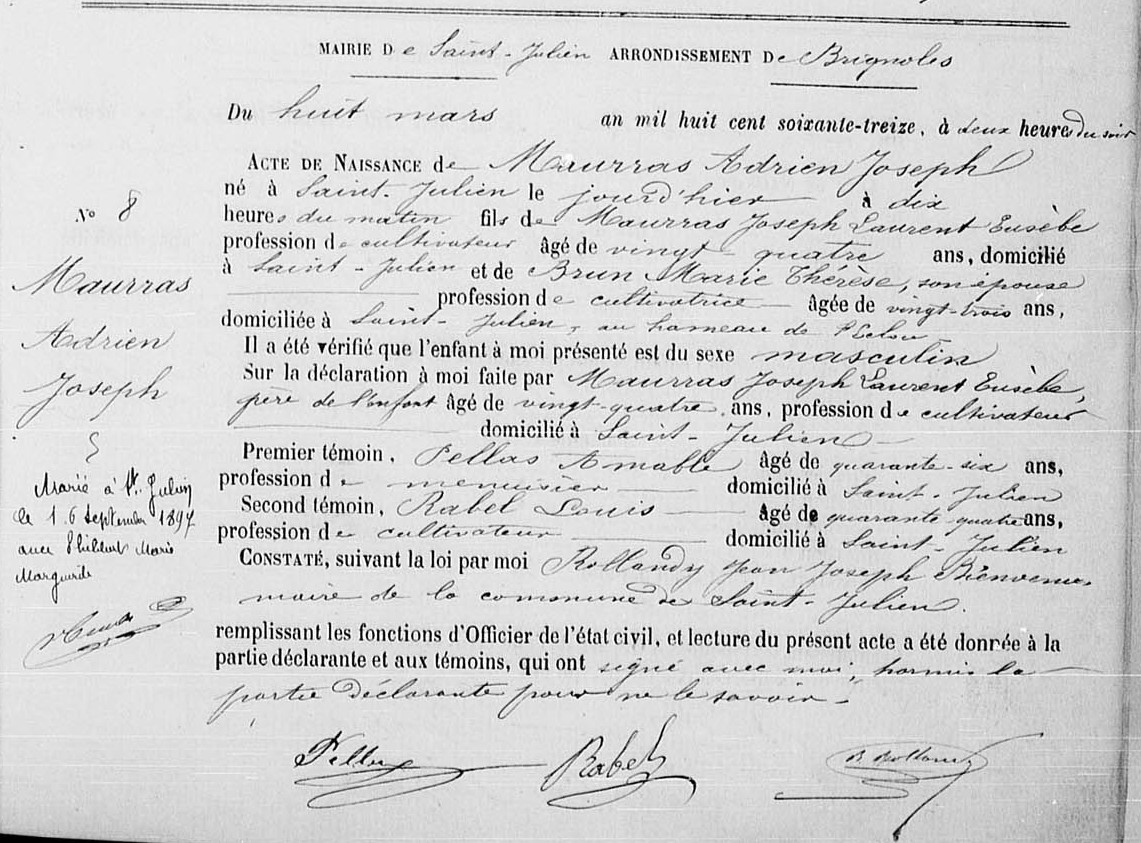 MAIRIE De Saint-Julien ARRONDISSEMENT De Brignoles
Du huit mars an mil huit cent soixante-treize, à deux heures du soir
ACTE DE NAISSANCE de Maurras Adrien Joseph
né à Saint-Julien le jourd'hier à dix
heures du matin fils de Maurras Joseph Laurent Eusèbe
profession de cultivateur âgé de vingt-quatre ans, domicilié
à Saint-Julien et de Brun Marie Thérèse, son épouse
profession de cultivatrice âgée de vingt-trois ans,
domiciliée à Saint-Julien, au hameau de
Il a été vérifié que l'enfant à moi présenté est du sexe masculin
Sur la déclaration à moi faite par Maurras Joseph Laurent Eusèbe,
père de l'enfant âgé de vingt-quatre ans, profession de cultivateur
domicilié à Saint-Julien
Premier témoin, Pellas Amable âgé de quarante-six ans,
profession de menuisier domicilié à Saint-Julien
Second témoin, Rabel Louis âgé de quarante-quatre ans,
profession de cultivateur domicilié à Saint-Julien
CONSTATÉ, suivant la loi par moi Rollandy Jean Joseph Bienvenu,
maire de la commune de Saint-Julien.
remplissant les fonctions d'Officier de l'état civil, et lecture du présent acte a été donnée à la
partie déclarante et aux témoins, qui ont signé avec moi, hormis la
partie déclarante pour ne le savoir.
Pellas Rabel B Rollandy
No 8
Maurras
Adrien
Joseph
Marié à St. Julien
le 16 septembre 1897
avec Philibert Marie
Marguerite